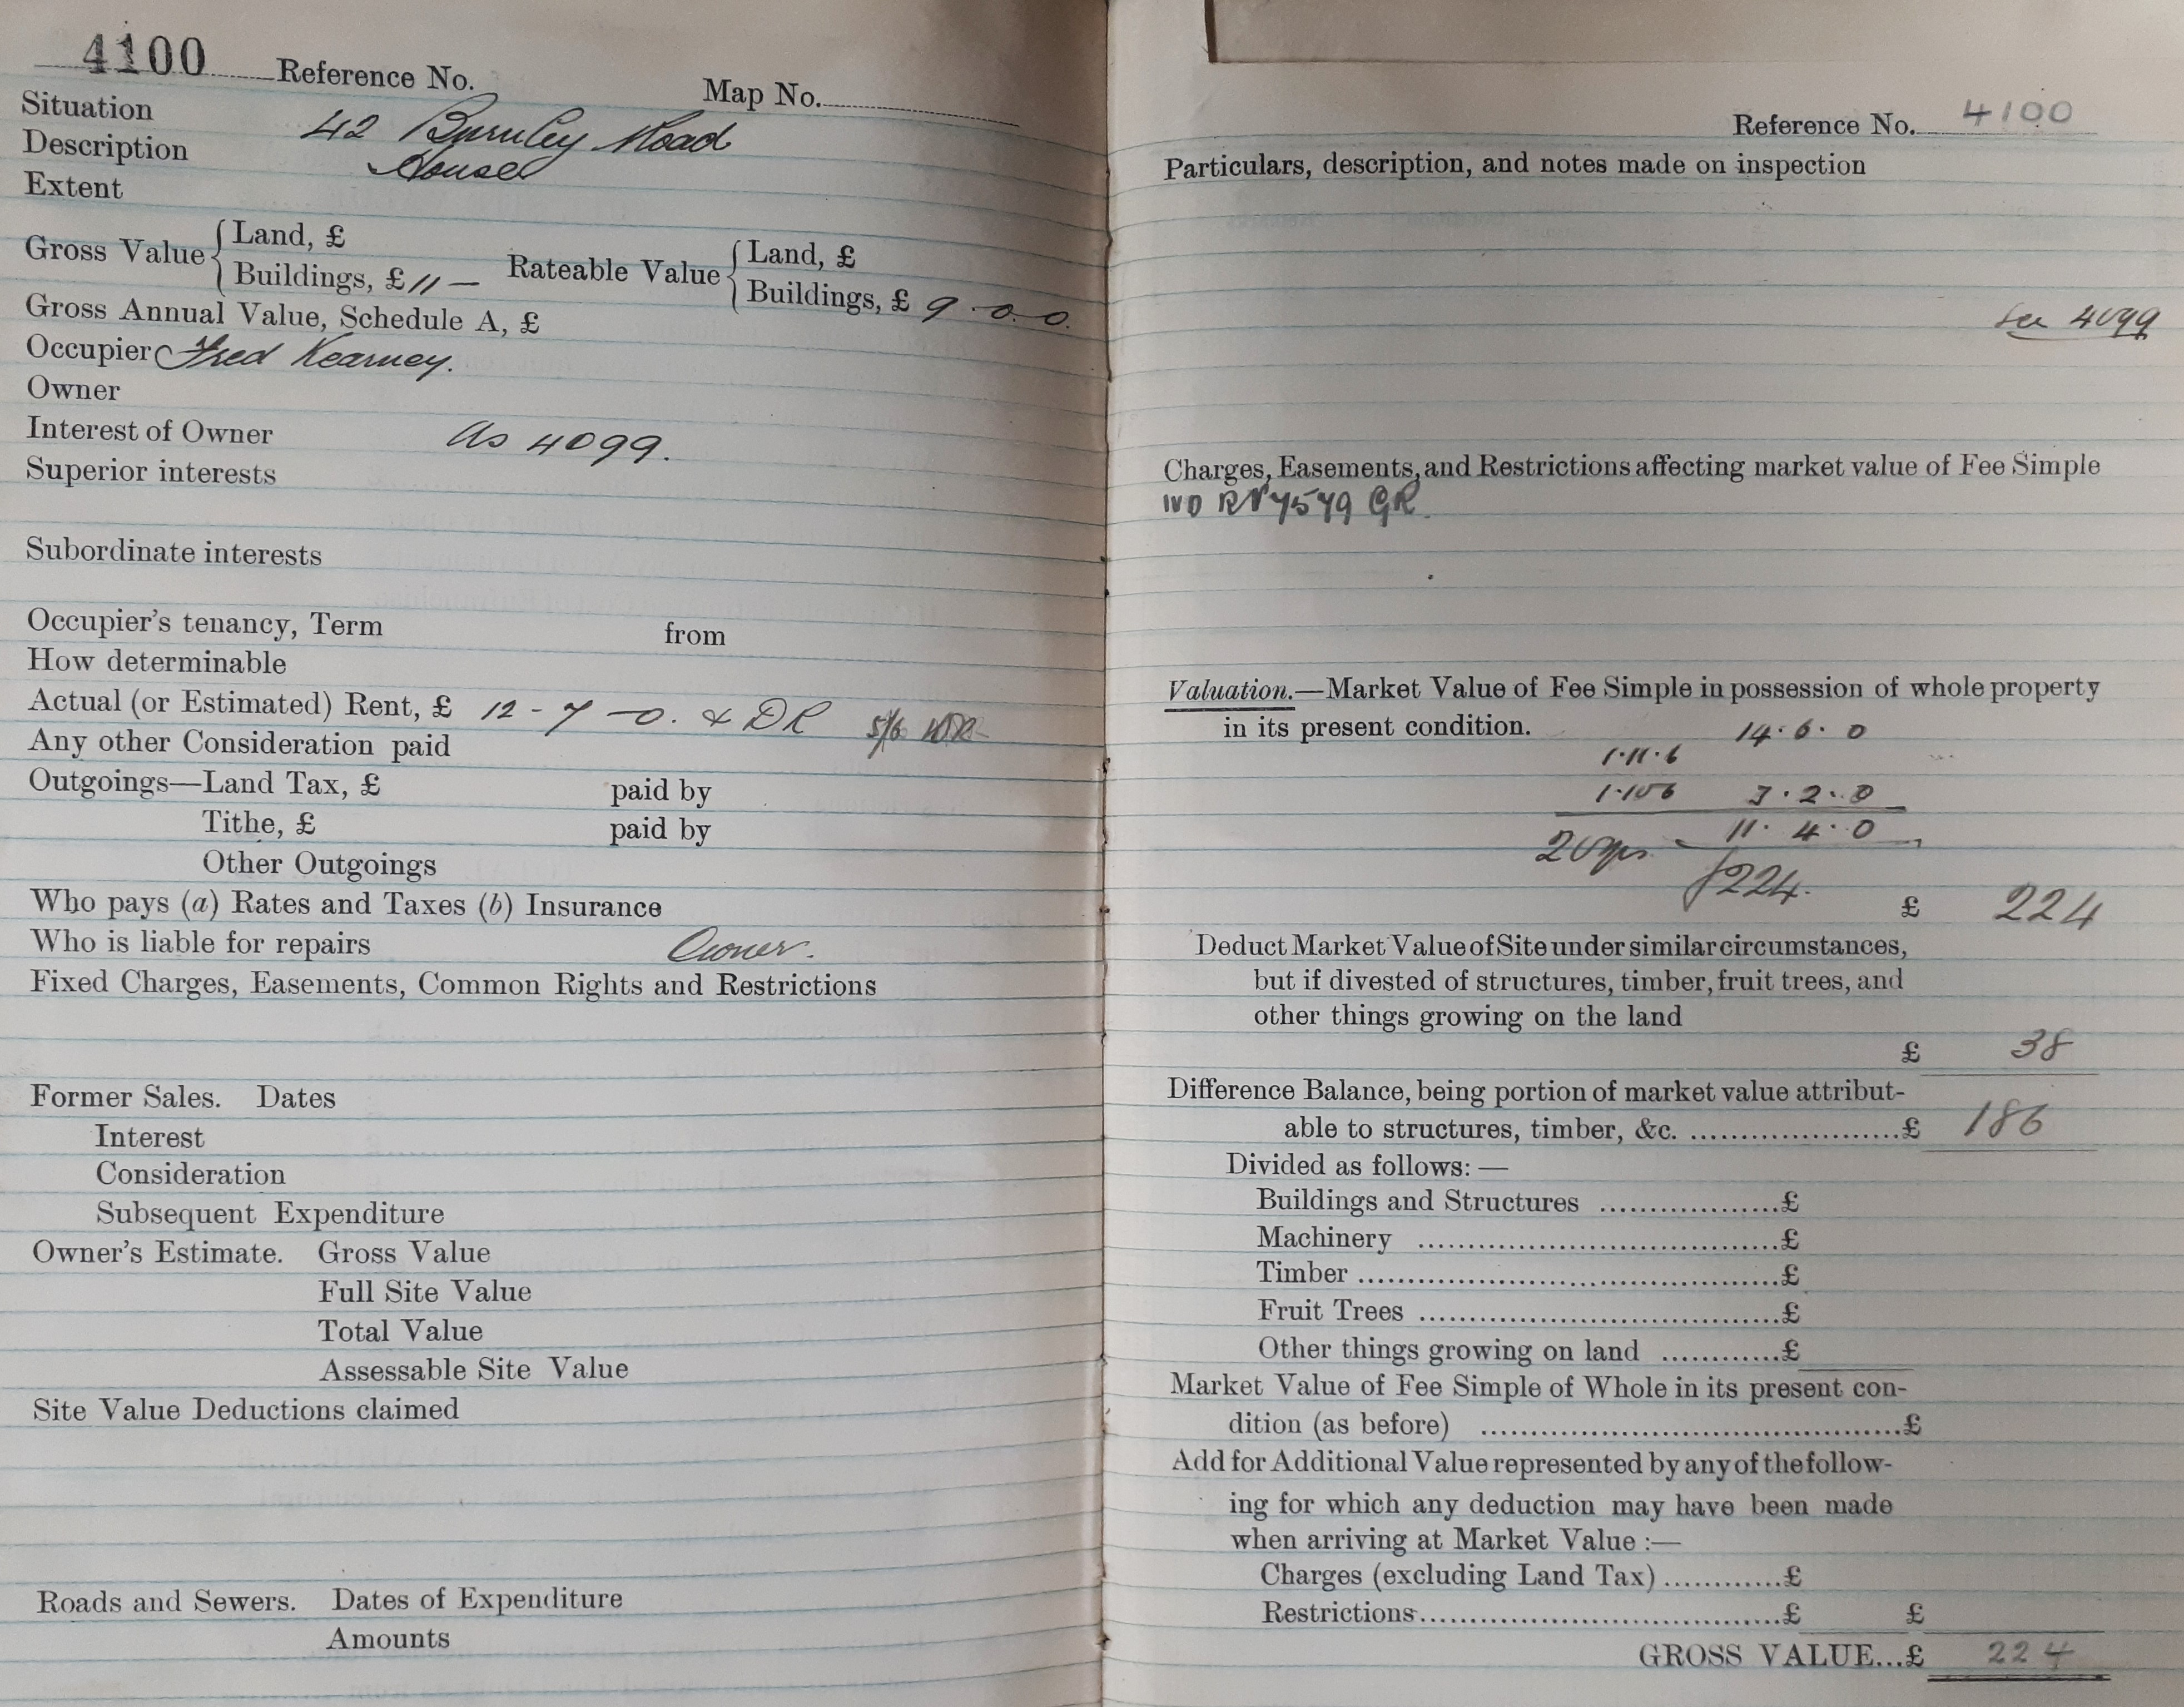 4100 Reference No. Map No.
Situation 42 Burnley Road
Description House
Extent
Gross Value { Land, £
Buildings, £ 11 — Rateable Value { Land, £
Buildings, £ 9 - 0 - 0.
Gross Annual Value, Schedule A, £
Occupier Fred Kearney.
Owner
Interest of Owner As 4099.
Superior interests
Subordinate interests
Occupier's tenancy, Term from
How determinable
Actual (or Estimated) Rent, £ 12 - 7 - 0. & DR 5/6
Any other Consideration paid
Outgoings—Land Tax, £ paid by
Tithe, £ paid by
Other Outgoings
Who pays (a) Rates and Taxes (b) Insurance
Who is liable for repairs Owner.
Fixed Charges, Easements, Common Rights and Restrictions
Former Sales. Dates
Interest
Consideration
Subsequent Expenditure
Owner's Estimate. Gross Value
Full Site Value
Total Value
Assessable Site Value
Site Value Deductions claimed
Roads and Sewers. Dates of Expenditure
Amounts
Reference No. 4100
Particulars, description, and notes made on inspection
See 4099
Charges, Easements, and Restrictions affecting market value of Fee Simple
GR.
Valuation.—Market Value of Fee Simple in possession of whole property
in its present condition. 14. 6. 0
1. 11. 6
1. 10 6 3. 2. 0
20 yrs 11. 4. 0
£224.
£ 224
Deduct Market Value of Site under similar circumstances,
but if divested of structures, timber, fruit trees, and
other things growing on the land
£ 38
Difference Balance, being portion of market value attribut-
able to structures, timber, &c. ......................£ 186
Divided as follows: —
Buildings and Structures ..................£
Machinery ....................................£
Timber ..........................................£
Fruit Trees ....................................£
Other things growing on land ............£
Market Value of Fee Simple of Whole in its present con-
dition (as before) ..........................................£
Add for Additional Value represented by any of the follow-
ing for which any deduction may have been made
when arriving at Market Value :—
Charges (excluding Land Tax) ............£
Restrictions......................................£ £
GROSS VALUE...£ 224